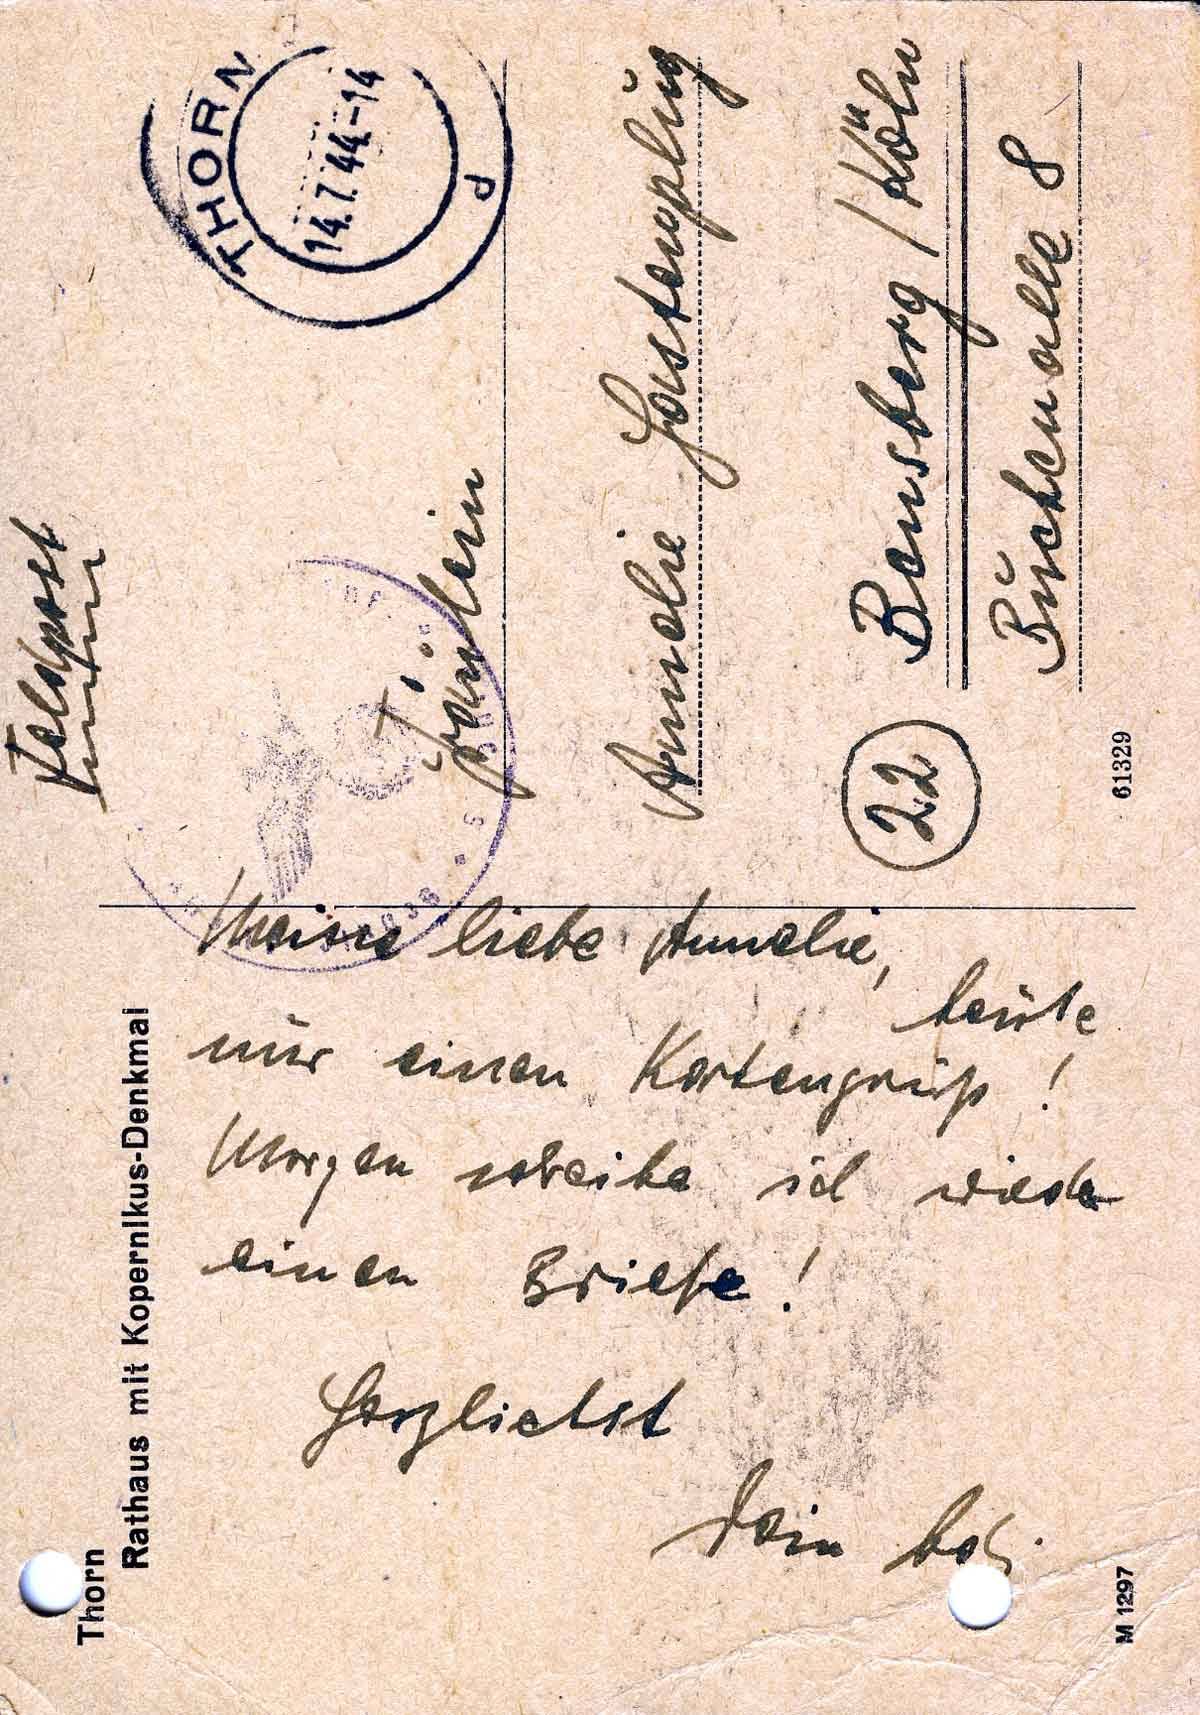 Thorn
Rathaus mit Kopernikus-Denkmal
Meine liebe Annelie,
heute
nur einen Kartengruß!
Morgen schreibe ich wieder
einen Briefe!
Herzlichst
Dein
M 1297
Feldpost
THORN
14.7.44.-14
d
Fräulein
Annelie Hastenpflug
(22)
Bensberg/Köln
Buchenallee 8
61329